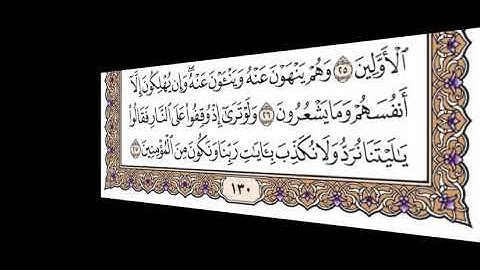 ٱلْأَوَّلِينَ ٢٥ وَهُمْ يَنْهَوْنَ عَنْهُ وَيَنْـَٔوْنَ عَنْهُ ۖ وَإِن يُهْلِكُونَ إِلَّآ
أَنفُسَهُمْ وَمَا يَشْعُرُونَ ٢٦ وَلَوْ تَرَىٰٓ إِذْ وُقِفُوا۟ عَلَى ٱلنَّارِ فَقَالُوا۟
يَـٰلَيْتَنَا نُرَدُّ وَلَا نُكَذِّبَ بِـَٔايَـٰتِ رَبِّنَا وَنَكُونَ مِنَ ٱلْمُؤْمِنِينَ ٢٧
١٣٠